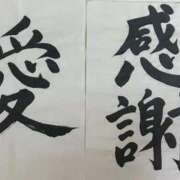 感謝
愛